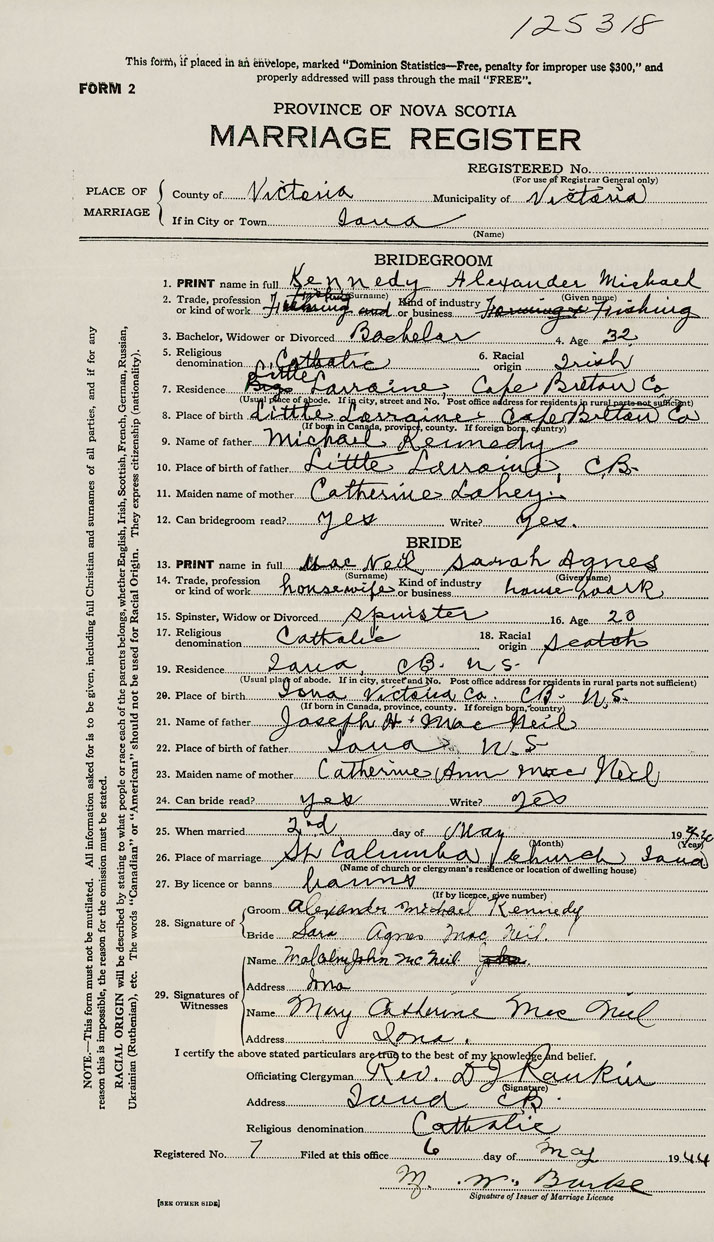 125318
This form, if placed in an envelope, marked "Dominion Statistics—Free, penalty for improper use $300," and
properly addressed will pass through the mail "FREE".
FORM 2
PROVINCE OF NOVA SCOTIA
MARRIAGE REGISTER
REGISTERED No.
(For use of Registrar General only)
PLACE OF MARRIAGE
County of Victoria Municipality of Victoria
If in City or Town Iona
(Name)
BRIDEGROOM
1. PRINT name in full Kennedy Alexander Michael
(Surname) (Given name)
2. Trade, profession or kind of work Kind of industry or business Fishing
3. Bachelor, Widower or Divorced Bachelor 4. Age 32
5. Religious denomination Catholic 6. Racial origin Irish
7. Residence Little Lorraine Cape Breton Co
(Usual place of abode. If in city, street and No. Post office address for residents in rural parts not sufficient)
8. Place of birth Little Lorraine Cape Breton Co
(If born in Canada, province, county. If foreign born, country)
9. Name of father Michael Kennedy
10. Place of birth of father Little Lorraine, C.B.
11. Maiden name of mother Catherine Lahey.
12. Can bridegroom read? yes Write? yes.
BRIDE
13. PRINT name in full Mac Neil Sarah Agnes
(Surname) (Given name)
14. Trade, profession or kind of work housewife Kind of industry or business house work
15. Spinster, Widow or Divorced spinster 16. Age 20
17. Religious denomination Catholic 18. Racial origin Scotch
19. Residence Iona, C.B. N.S.
(Usual place of abode. If in city, street and No. Post office address for residents in rural parts not sufficient)
20. Place of birth Iona Victoria Co. C.B. N.S.
(If born in Canada, province, county. If foreign born, country)
21. Name of father Joseph H. Mac Neil
22. Place of birth of father Iona N.S
23. Maiden name of mother Catherine Ann Mac Neil
24. Can bride read? yes Write? yes
25. When married 2nd day of May 19
(Month) (Year)
26. Place of marriage St Columba Church Iona
(Name of church or clergyman's residence or location of dwelling house)
27. By licence or banns banns
(If by licence, give number)
28. Signature of Groom Alexander Michael Kennedy
Bride Sara Agnes Mac Neil.
29. Signatures of Witnesses
Name Malcolm John Mc Neil
Address Iona
Name Mary Catherine Mac Neil
Address Iona.
I certify the above stated particulars are true to the best of my knowledge and belief.
Officiating Clergyman Rev. D J Rankin
(Signature)
Address Iona CB.
Religious denomination Catholic
Registered No. 7 Filed at this office 6 day of May 1944
M. W. Burke
Signature of Issuer of Marriage Licence
[SEE OTHER SIDE]
NOTE.—This form must not be mutilated. All information asked for is to be given, including full Christian and surnames of all parties, and if for any
reason this is impossible, the reason for the omission must be stated.
RACIAL ORIGIN will be described by stating to what people or race each of the parents belongs, whether English, Irish, Scottish, French, German, Russian,
Ukrainian (Ruthenian), etc. The words "Canadian" or "American" should not be used for Racial Origin. They express citizenship (nationality).